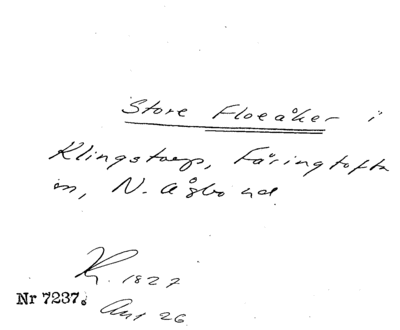 Store Floeåker i
Klingstorp, Färingtofta
sn, N. Åsbo hd
K. 1827
Nr 7237. Akt 26